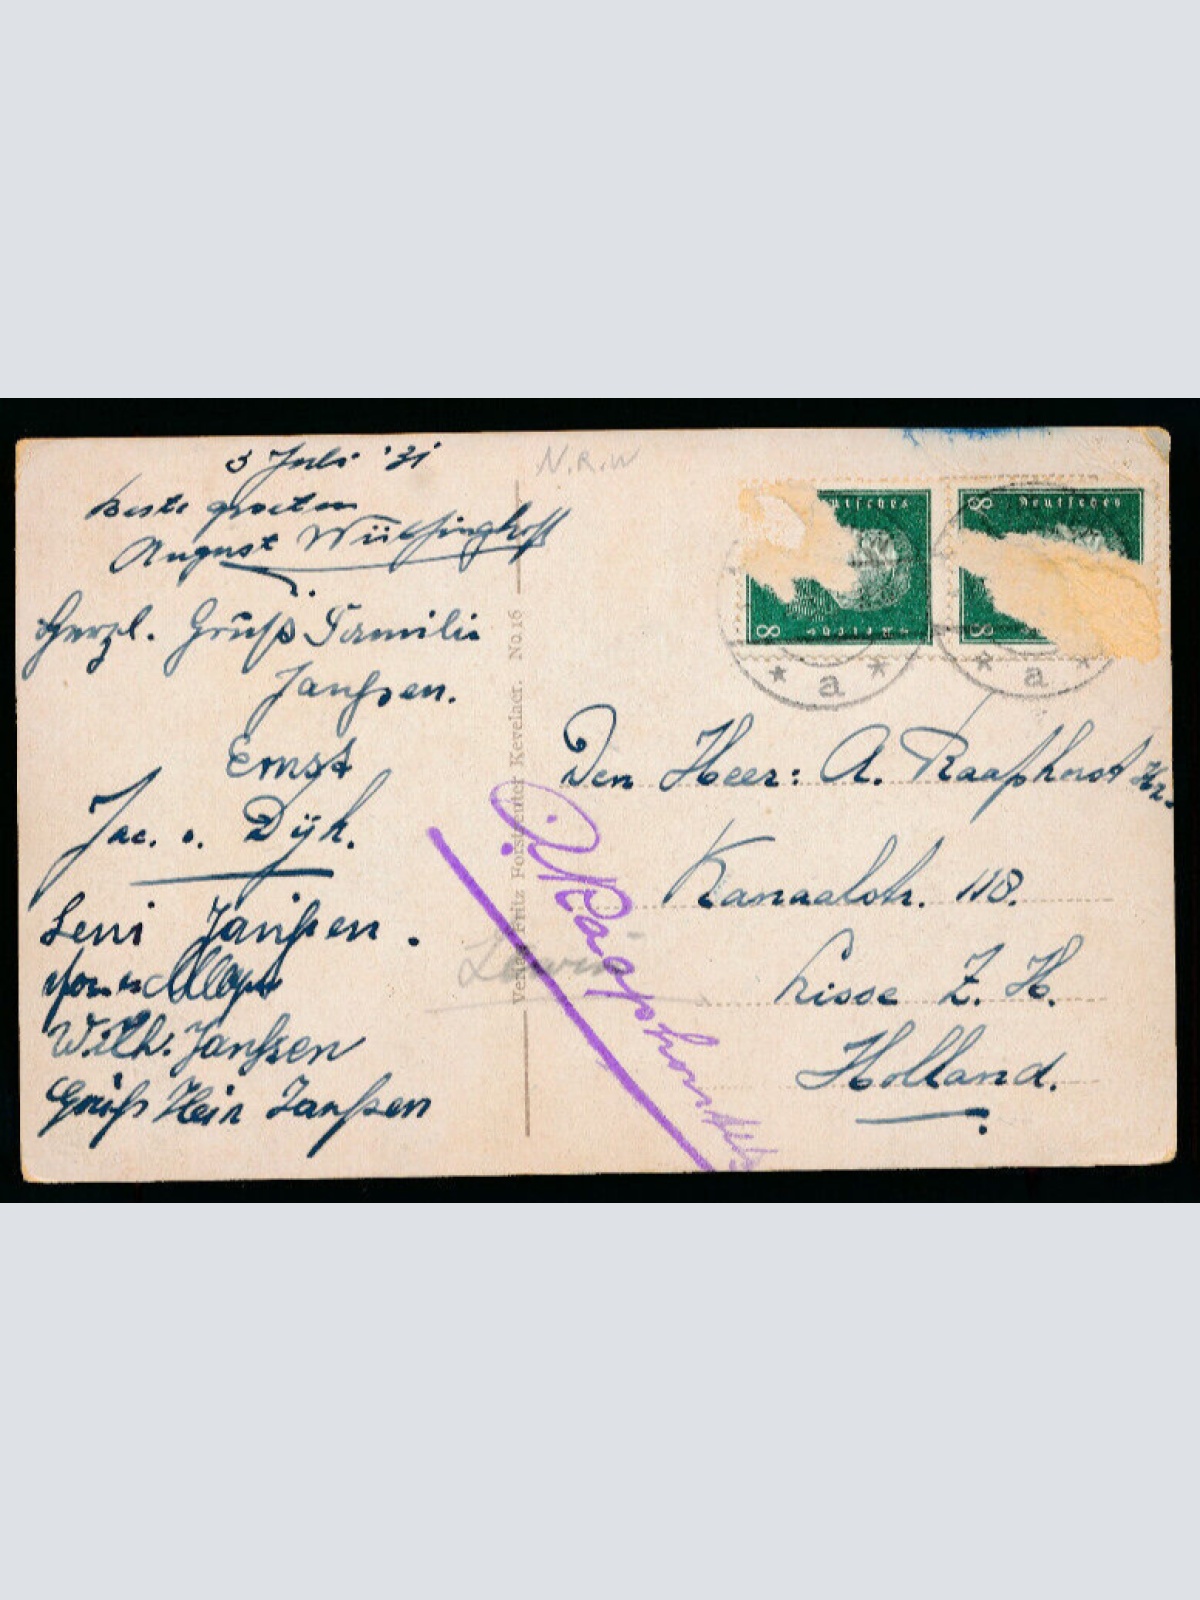 3 Juli '31
Beste groeten
August
Herzl. Gruß Familie
Janßen.
Ernst
Jac. v. Dijk.
Leni Janßen.
Wilh. Janßen
Gruß Hein Janßen
N.R.W
Verlag Fritz Forstreuter Kevelaer. No. 16
Deutsches
8
Deutsches
8
8
8
* a *
* a *
Den Heer: A. Raaphorst Hz.
Kanaalstr. 118.
Lisse Z. H.
Holland.
Raaphorst